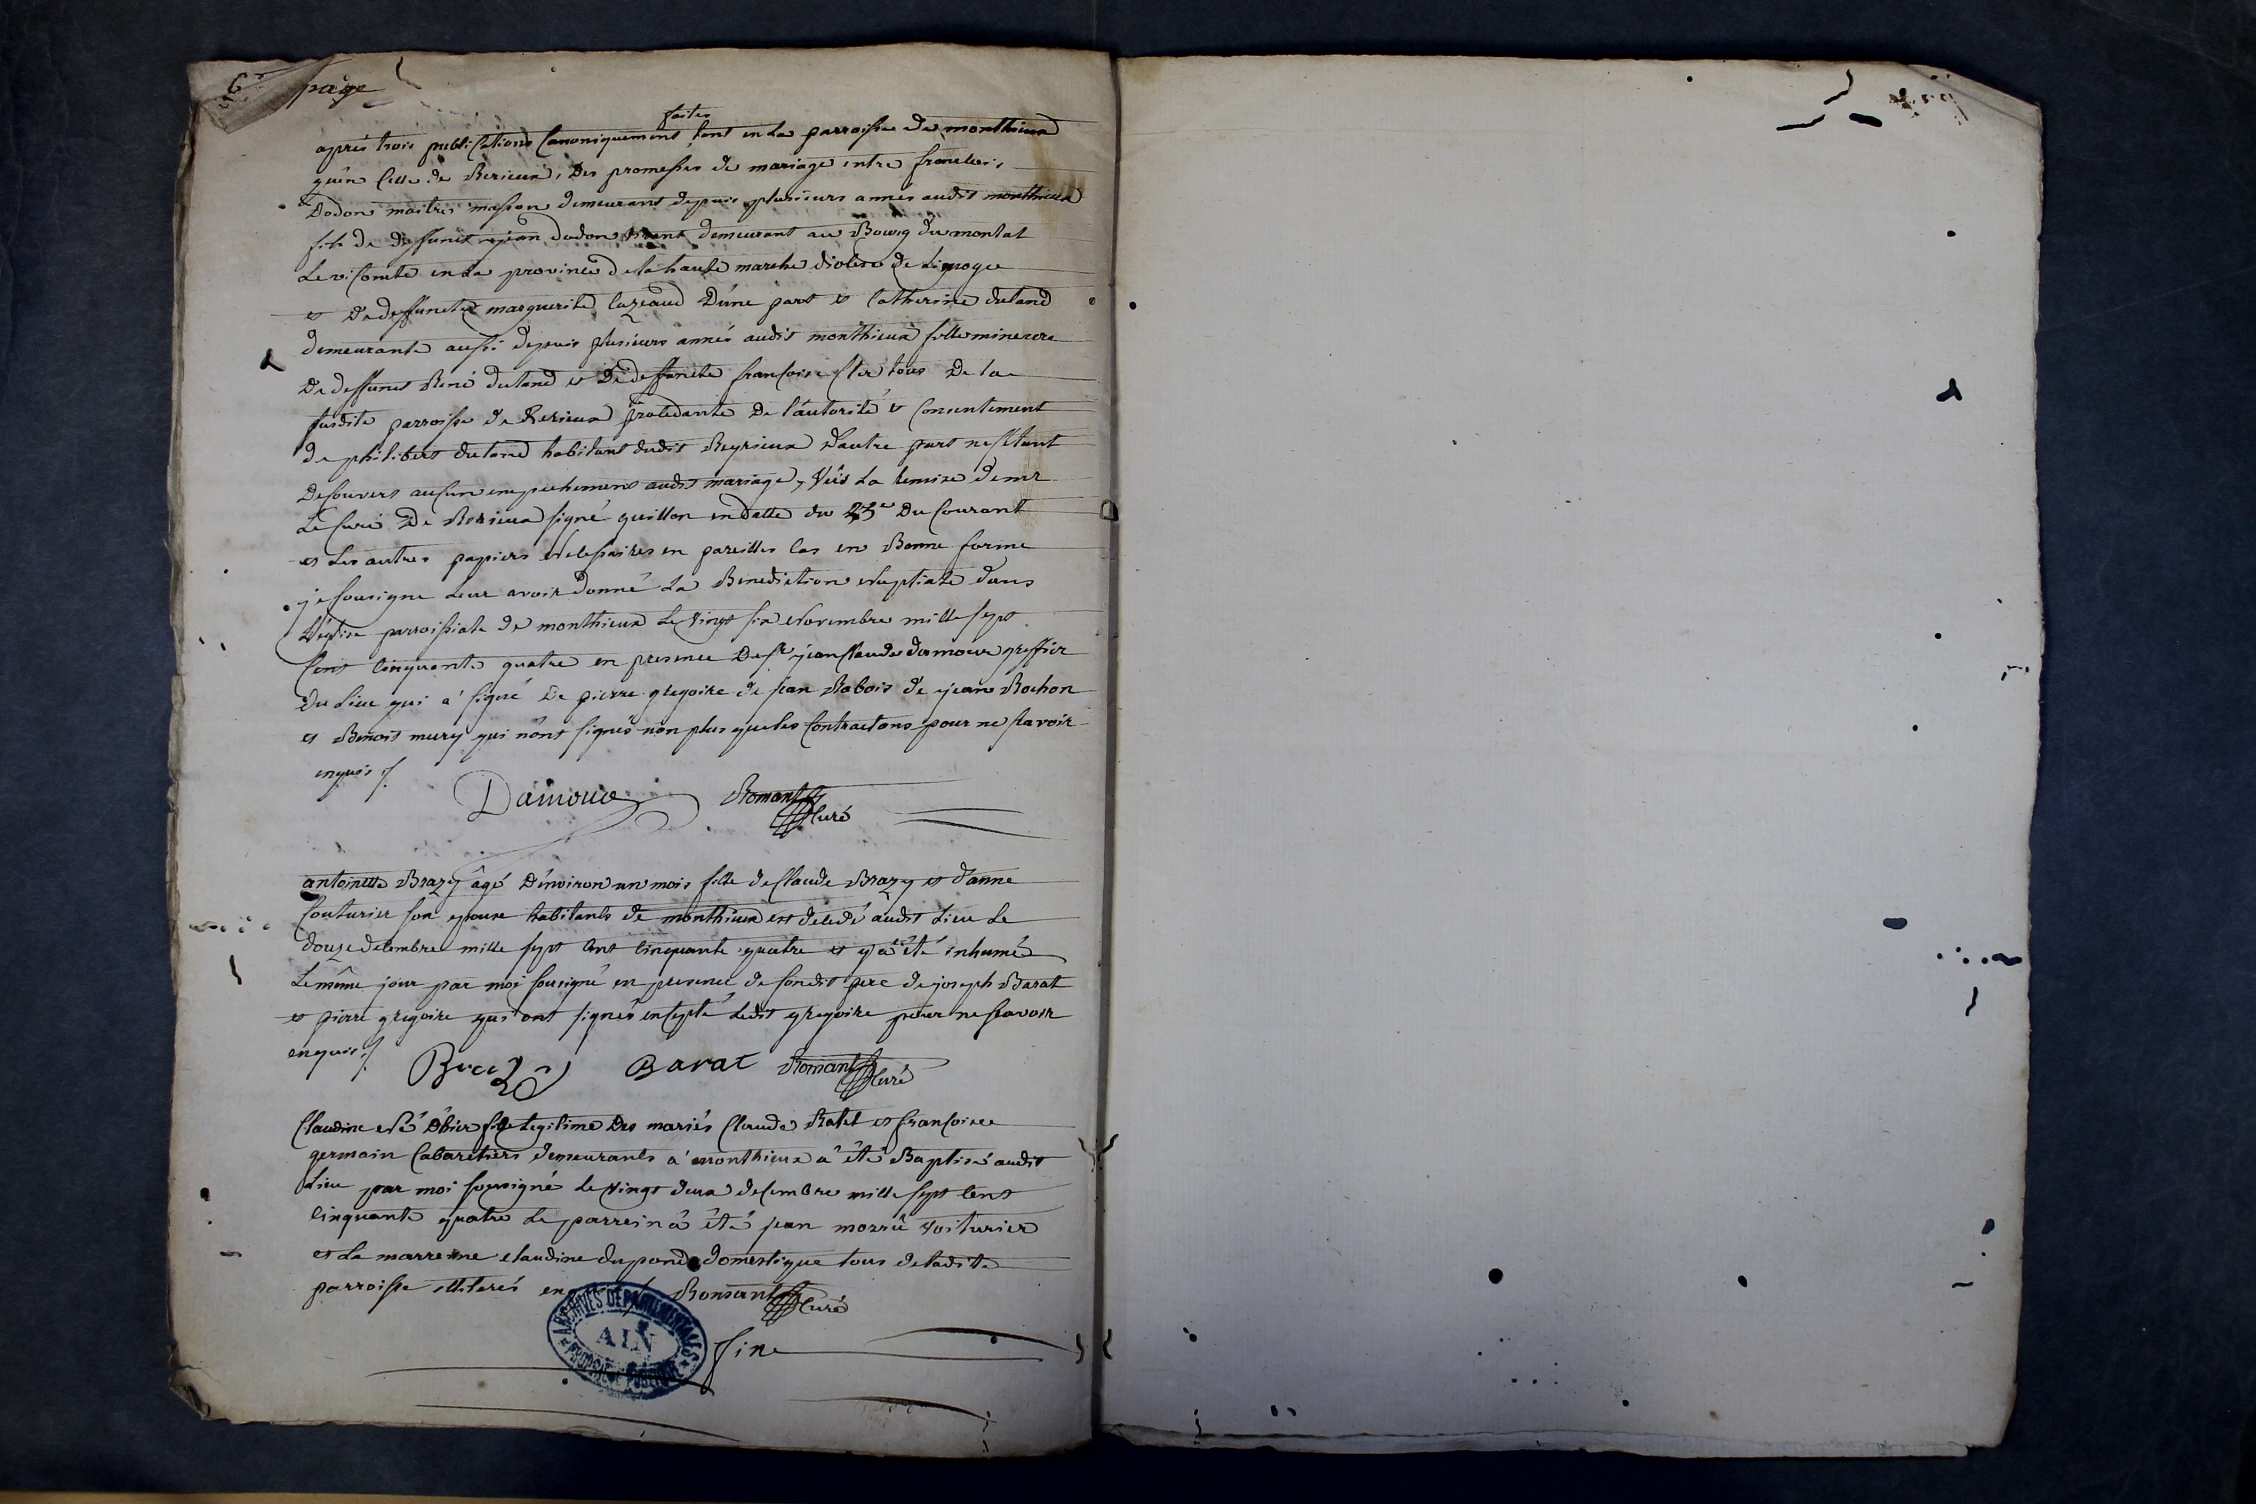 6e page
après trois publications Canoniquement faites tant en la parroisse de monthieux
qu'en Celle de Rerieux, Des promesses de mariage entre francois
Dodon maitre masson demeurant depuis plusieurs annés audit monthieux
fils de deffunct jean dodon vivant demeurant au Bourg du montat
Le viComte en la province de la haute marche diocèse de Limoge
et De deffuncte marguerite Cazeaud D'une part et Catherine duland
demeurante aussi depuis plusieurs annés audit monthieux fille mineure
De deffunct René duland et De deffuncte francoise tous De la
susdite parroisse de Rerieux procedante De l'autorité et Consentement
de philibert duland habitant dudit Reyrieux d'autre part ne s'étant
Decouvert aucun empechement audit mariage, Vüs La remise de mr
Le Curé De Rerieux signé guillon en datte du 23e Du Courant
et Les autres papiers necessaires en pareilles Cas en Bonne forme
je sousigne Leur avoir Donné La Benediction Nuptiale dans
L'église parroissiale de monthieux Le Vingt six Novembre mille sept
Cent Cinquante quatre en presence De Sr jean Claude damour greffier
Du Lieu qui a signé De pierre gregoire de jean Rabois de jean Rochon
et Benoit mury qui n'ont signés non plus que les Contractans pour ne scavoir
enquis ./.
Damour Romant Curé
antoinette Brazy agé D'environ un mois fille de Claude Brazy et d'anne
Couturier son epouse habitants de monthieux est decedé audit Lieu Le
douze decembre mille sept Cent Cinquante quatre et y a été inhumé
Le même jour par moi sousigné en presence de sondit pere de joseph Barat
et pierre gregoire qui ont signés excepté Ledit gregoire pour ne scavoir
enquis ./.
Brazy Barat Romant Curé
Claudine né D'hier fille Legitime Des mariés Claude Ratet et francoise
germain Cabaretiers demeurants a monthieux a été Baptisé audit
Lieu par moi sousigné Le Vingt deux decembre mille sept Cent
Cinquante quatre Le parrein a été jean morrü voiturier
et La marreine claudine dupond domestique tous de ladite
parroisse illiterés Romant Curé
fin
ARCHIVES DÉPARTEMENTALES
AIN